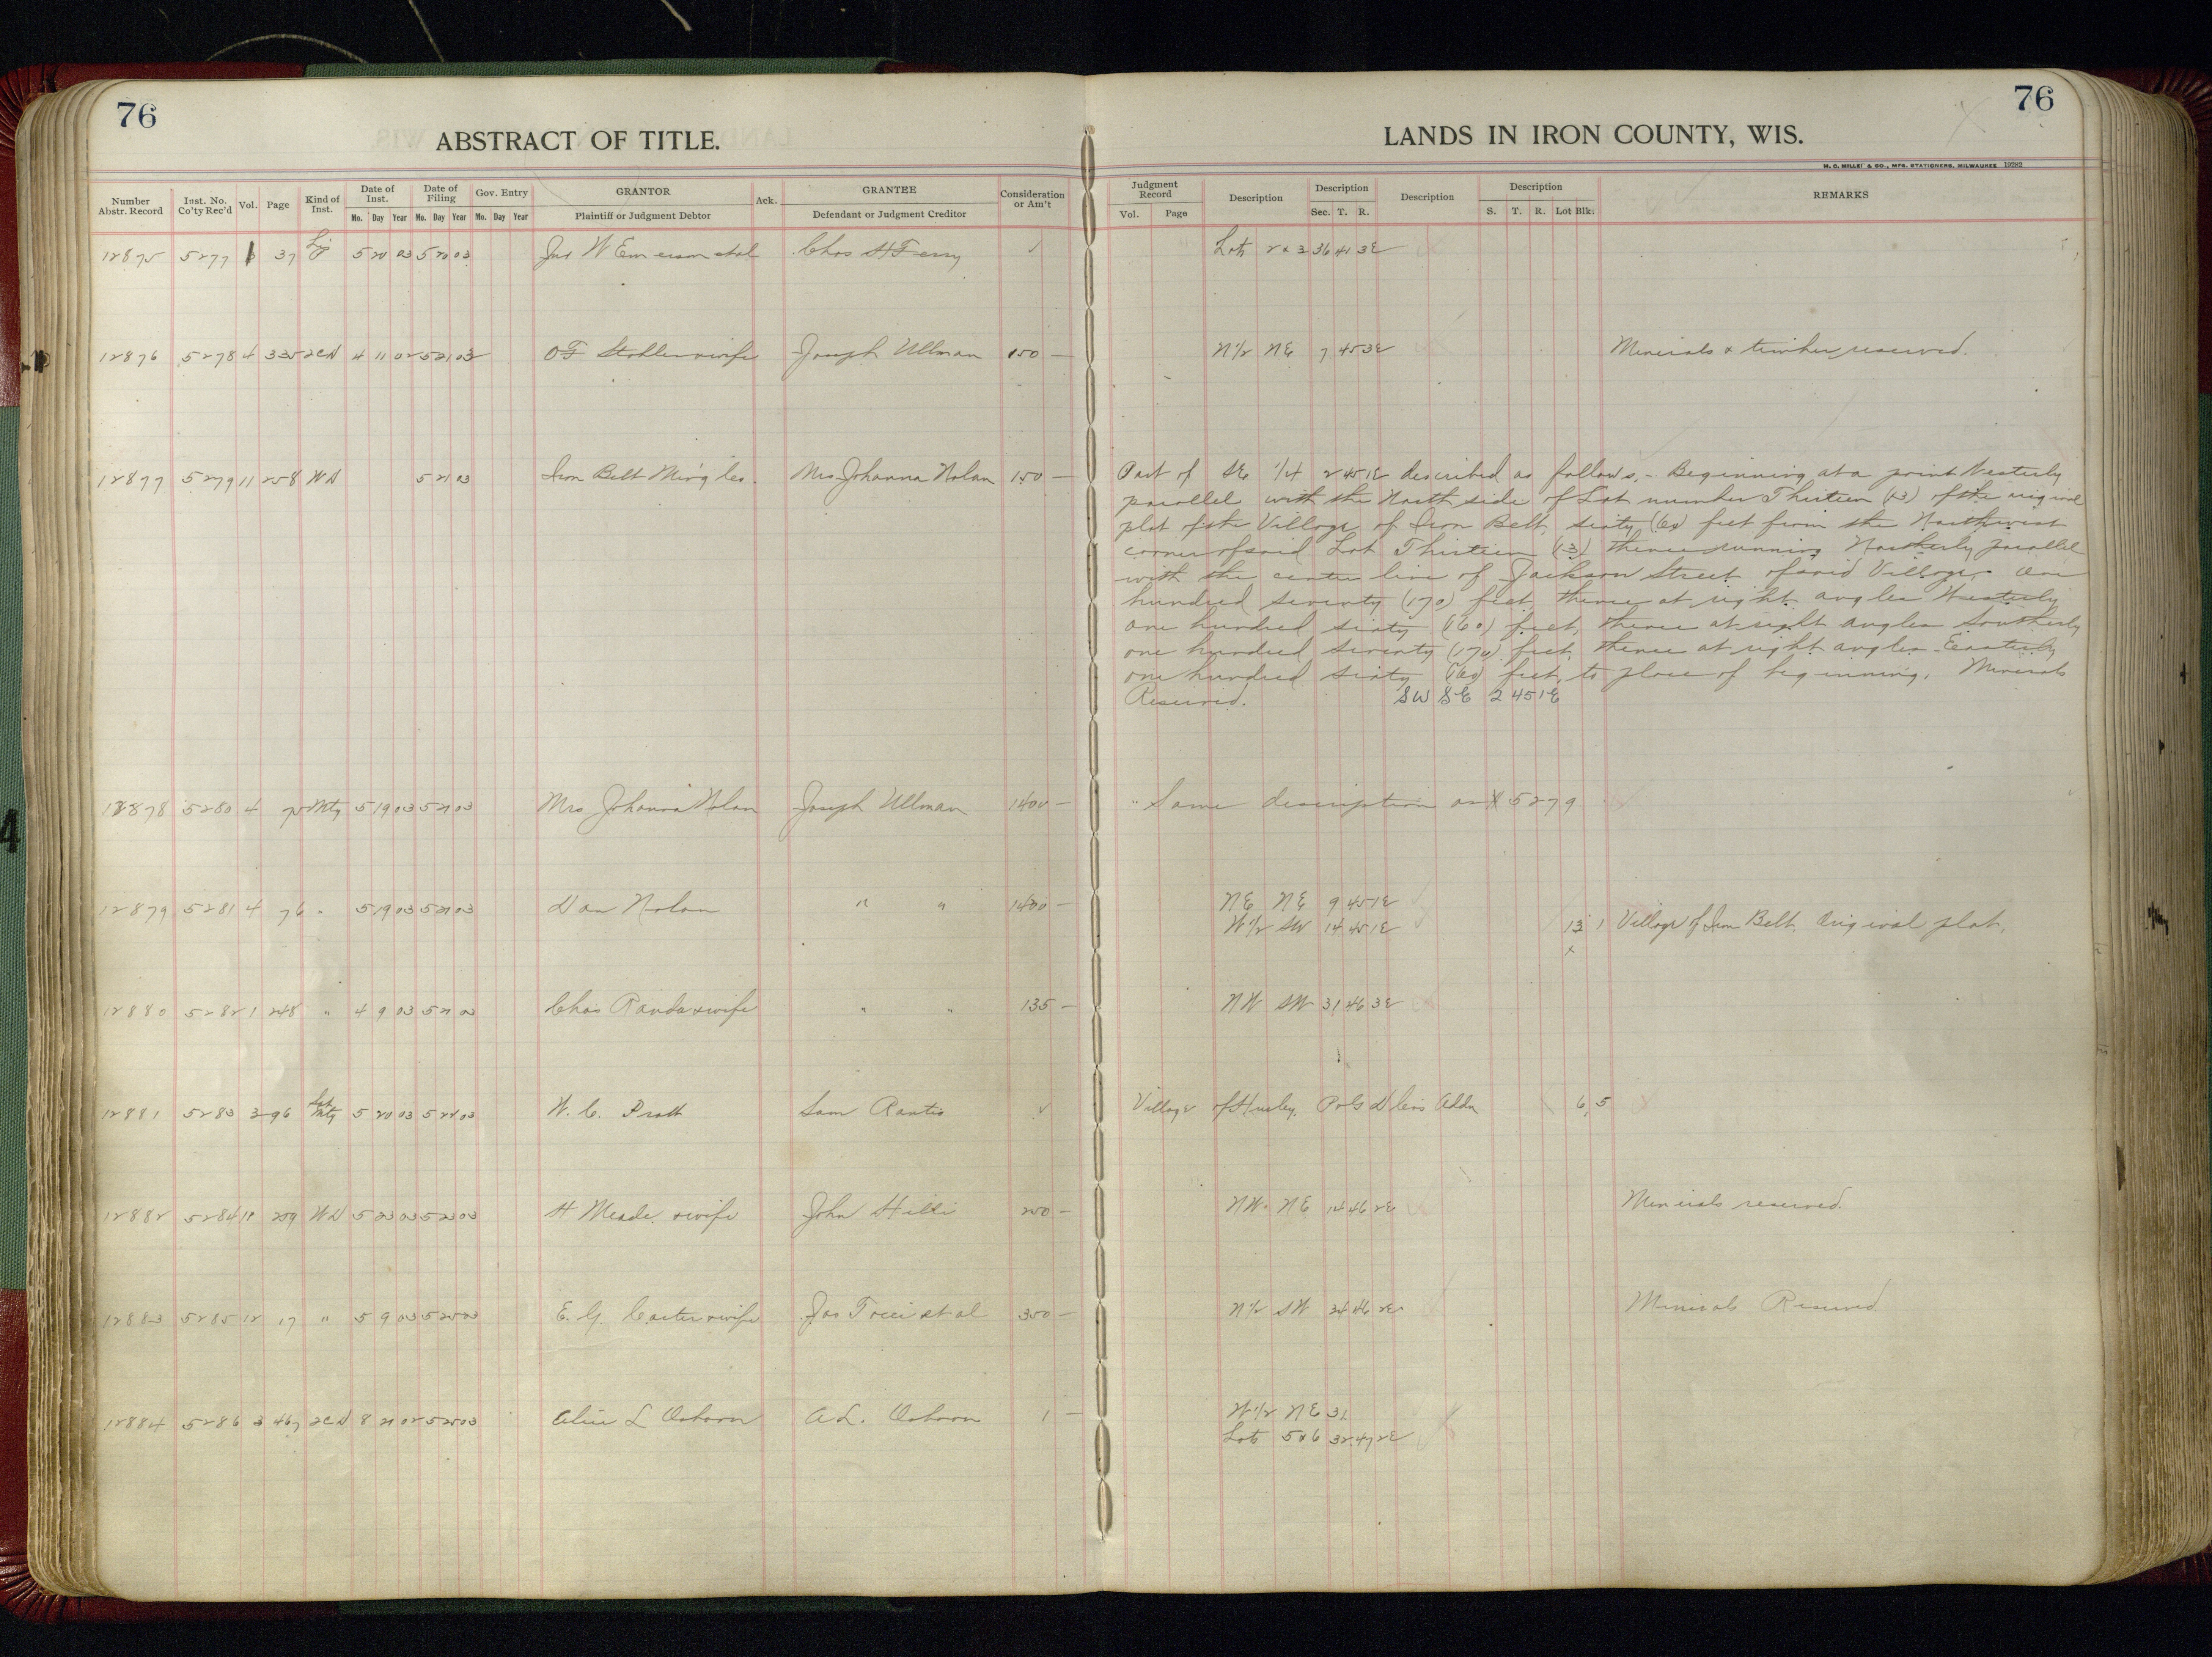 76
76
ABSTRACT OF TITLE.
LANDS IN IRON COUNTY, WIS.
H. C. MILLER & CO., MFG. STATIONERS, MILWAUKEE 19282
Number Abstr. Record Inst. No. Co'ty Rec'd Vol. Page Kind of Inst. Date of Inst. Date of Filing Gov. Entry GRANTOR Ack. GRANTEE Consideration or Am't Judgment Record Description Description Description Description REMARKS
Mo. Day Year Mo. Day Year Mo. Day Year Plaintiff or Judgment Debtor Defendant or Judgment Creditor Vol. Page Sec. T. R. S. T. R. Lot Blk.
12875 5277 37 5 20 03 5 20 03 Jno W Emerson et al Chas H Ferry ✓ Lots 2 & 3 36 41 3E
12876 5278 4 335 2CD 4 11 02 5 21 03 & wife Joseph Ullman 150 — N 1/2 NE 7 45 3E Minerals & timber reserved.
12877 5279 11 258 WD 5 21 03 Iron Belt Min'g Co. Mrs Johanna Nolan 150 — Part of SE 1/4 2 45 1E described as follows, - Beginning at a point Westerly
parallel with the North side of Lot number Thirteen (13) of the original
plat of the Village of Iron Belt, sixty (60) feet from the Northwest
corner of said Lot Thirteen (13) thence running Northerly parallel
with the center line of Jackson Street of said Village, One
hundred seventy (170) feet, thence at right angles Westerly
one hundred sixty (160) feet, thence at right angles Southerly
one hundred seventy (170) feet, thence at right angles Easterly
one hundred sixty (160) feet, to place of beginning. Minerals
Reserved. SW SE 2 45 1E
12878 5280 4 75 Mtg 5 19 03 5 21 03 Mrs Johanna Nolan Joseph Ullman 1400 — " Same description as # 5279
12879 5281 4 76 " 5 19 03 5 21 03 Dan Nolan " " 1400 — NE NE 9 45 1E
W 1/2 SW 14 45 1E 13 1 Village of Iron Belt, Original plat,
x
12880 5282 1 248 " 4 9 03 5 21 03 Chas Randa & wife " " 135 — NW SW 31 46 3E
12881 5283 3 96 Sat Mtg 5 20 03 5 22 03 W. C. Pratt Sam Rantio ✓ Village of Hurley. Addn 6 5
12882 5284 11 259 WD 5 23 03 5 23 03 H Meade & wife John Hilli 200 — NW NE 14 46 2E Minerals reserved.
12883 5285 12 17 " 5 9 03 5 25 03 E. G. Carter & wife Jas et al 350 — N 1/2 SW 24 46 2E Minerals Reserved
12884 5286 3 467 2CD 8 21 02 5 25 03 Alice L Osborn A. L. Osborn 1 — W 1/2 NE 31
Lots 5 & 6 32 47 2E